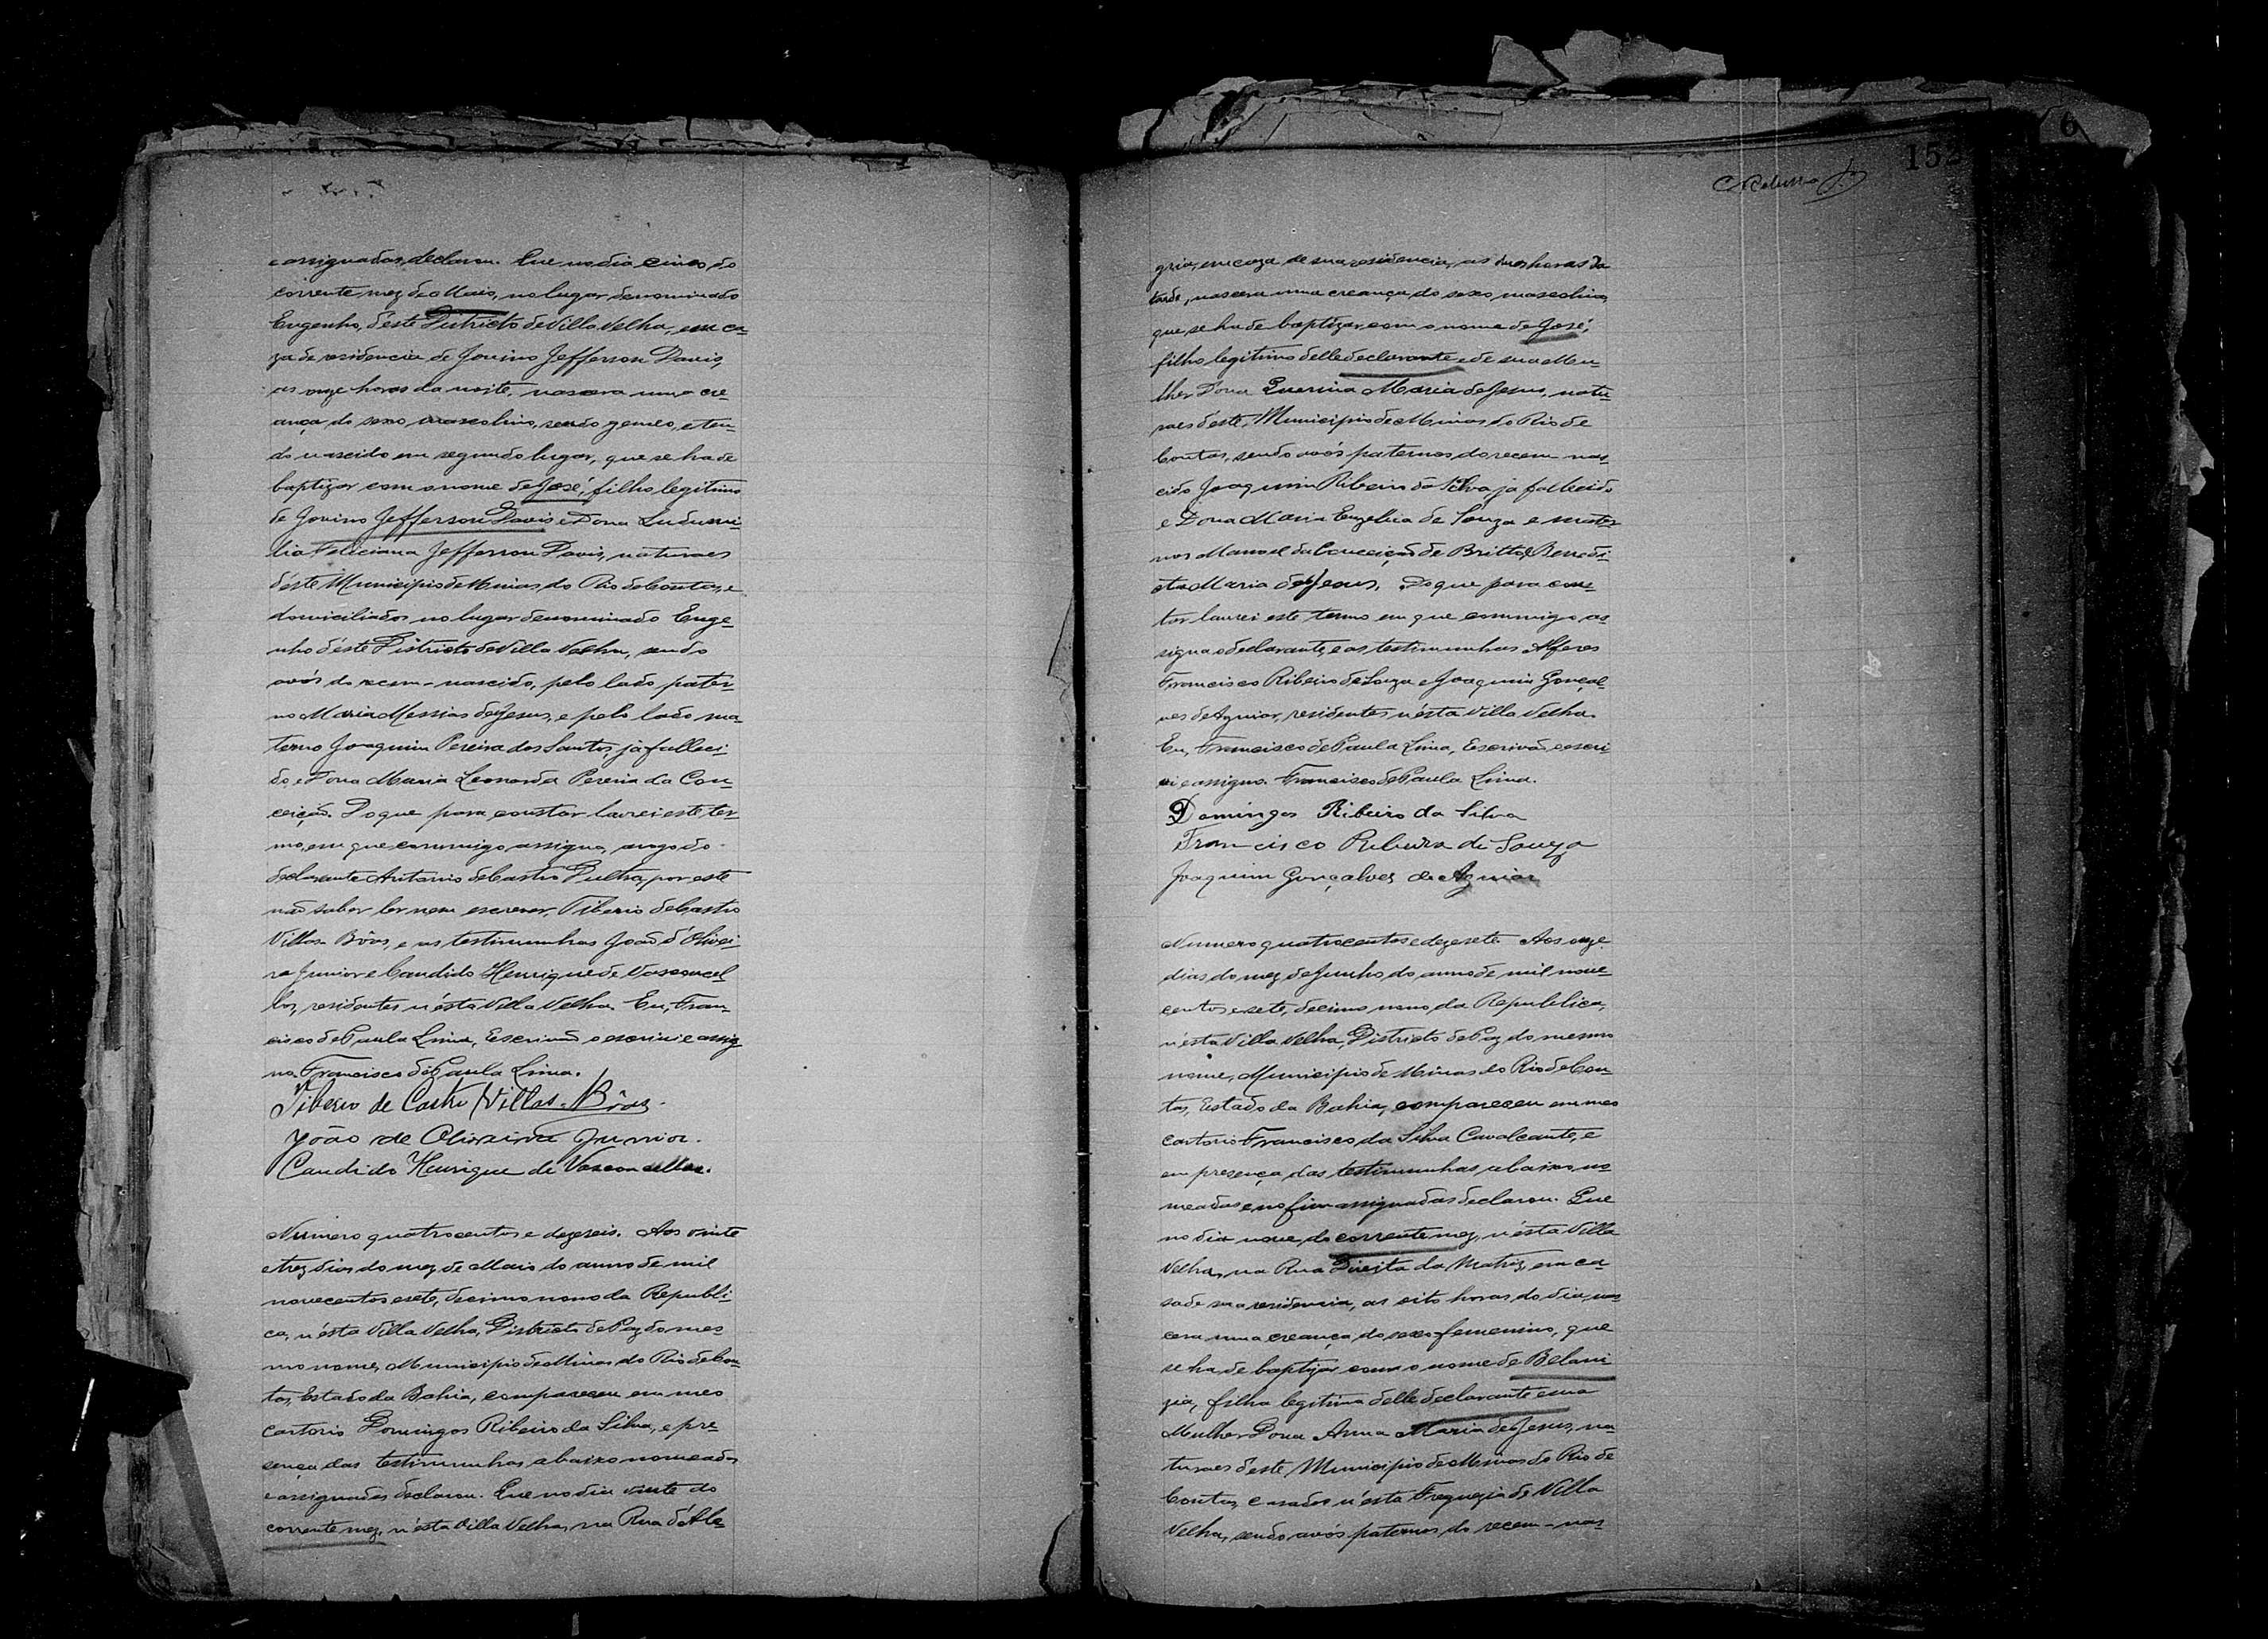 e assignadas, declarou. Que no dia cinco do
corrente mez de Maio, no lugar denominado
Engenho, d'este Districto de Villa Velha, em ca-
za de residencia de Jovino Jefferson Davis,
as onze horas da noite, nascera uma cre-
ança do sexo masculino, sendo gemeo, e ten-
do nascido em segundo lugar, que se ha de
baptizar com o nome de José, filho legitimo
de Jovino Jefferson Davis e Dona Ludumi-
lia Feliciana Jefferson Davis, naturaes
d'este Municipio de Minas do Rio de Contas, e
domiciliados no lugar denominado Enge-
nho d'este Districto de Villa Velha, sendo
avós do recem-nascido, pelo lado pater-
no Maria Messias de Jesus, e pelo lado ma-
terno Joaquim Pereira dos Santos, já falleci-
do, e Dona Maria Leonarda Pereira da Con-
ceição. Do que para constar lavrei este ter-
mo, em que commigo assigna, a rogo do
declarante Antonio de Castro Dultra, por este
não saber ler nem escrever, Tiberio de Castro
Villas-Bôas, e as testimunhas João d'Olivei-
ra Junior e Candido Henrique de Vasconcel-
los, residentes n'ésta Villa Velha. Eu, Fran-
cisco de Paula Lima, Escrivão o escrivi e assig-
no. Francisco de Paula Lima.
Tiberio de Castro Villas-Bôas.
João de Oliveira Junior.
Candido Henrique de Vasconcellos.
Numero quatrocentos e dezeseis. Aos vinte
e trez dias do mez de Maio do anno de mil
novecentos e sete, decimo nono da Republi-
ca, n'ésta Villa Velha, Districto de Paz do mes-
mo nome, Municipio de Minas do Rio de Con-
tas, Estado da Bahia, compareceu em meo
cartorio Domingos Ribeiro da Silva, e pre-
sença das testimunhas abaixo nomeadas
e assignadas declarou. Que no dia vinte do
corrente mez, n'ésta Villa Velha, na Rua d'Ale-
152
6
gria, em caza de sua residencia, as duas horas da
tarde, nascera uma creança do sexo masculino,
que se ha de baptizar com o nome de José,
filho legitimo delle declarante e de sua Mu-
lher Dona Querina Maria de Jesus, natu-
raes d'este Municipio de Minas do Rio de
Contas, sendo avós paternos do recem-nas-
cido Joaquim Ribeiro da Silva já fallecido
e Dona Maria Engelica de Souza e mater-
nos Manoel da Conceição de Britto e Benedi-
cta Maria de Jesus. Do que para cons-
tar lavrei este termo em que commigo as-
signa o declarante, e as testimunhas Alferes
Francisco Ribeiro de Souza e Joaquim Gonçal-
ves de Aguiar, residentes n'ésta Villa Velha.
Eu, Francisco de Paula Lima, Escrivão, o escri-
vi e assigno. Francisco de Paula Lima.
Domingos Ribeiro da Silva
Francisco Ribeiro de Souza
Joaquim Gonçalves de Aguiar
Numero quatrocentos e dezesete. Aos onze
dias do mez de Junho do anno de mil nove-
centos e sete, decimo nono da Republica,
n'ésta Villa Velha, Districto de Paz do mesmo
nome, Municipio de Minas do Rio de Con-
tas, Estado da Bahia, compareceu em meo
cartorio Francisco da Silva Cavalcante, e
em presença das testimunhas abaixo no-
meadas e no fim assignadas declarou. Que
no dia nove do corrente mez, n'ésta Villa
Velha, na Rua Direita da Matriz, em ca-
sa de sua residencia, as oito horas do dia, nas-
cera uma creança do sexo femenino, que
se ha de baptizar com o nome de Belani-
zia, filha legitima delle declarante e sua
Mulher Dona Anna Maria de Jesus, na-
turaes d'este Municipio de Minas do Rio de
Contas, casados n'ésta Freguezia de Villa
Velha, sendo avós paternos do recem-nas-